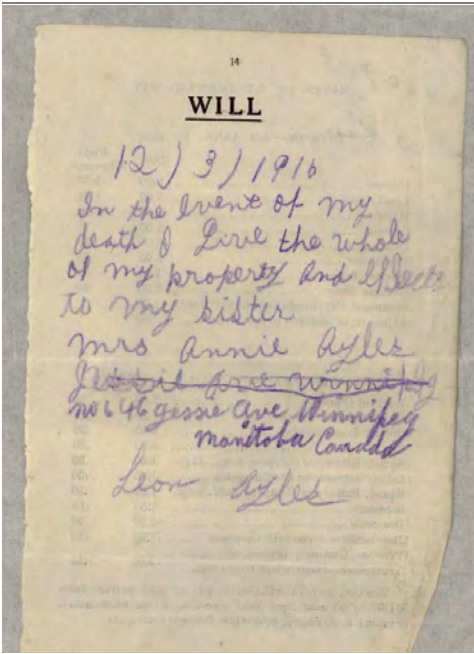 14
WILL
12/3/1916
In the Event of my
death I Give the whole
of my property And Effects
to my sister
Mrs Annie Ayles
Jessie Ave Winnipeg
No 646 gessie Ave Winnipeg
Manitoba Canada
Leon Ayles